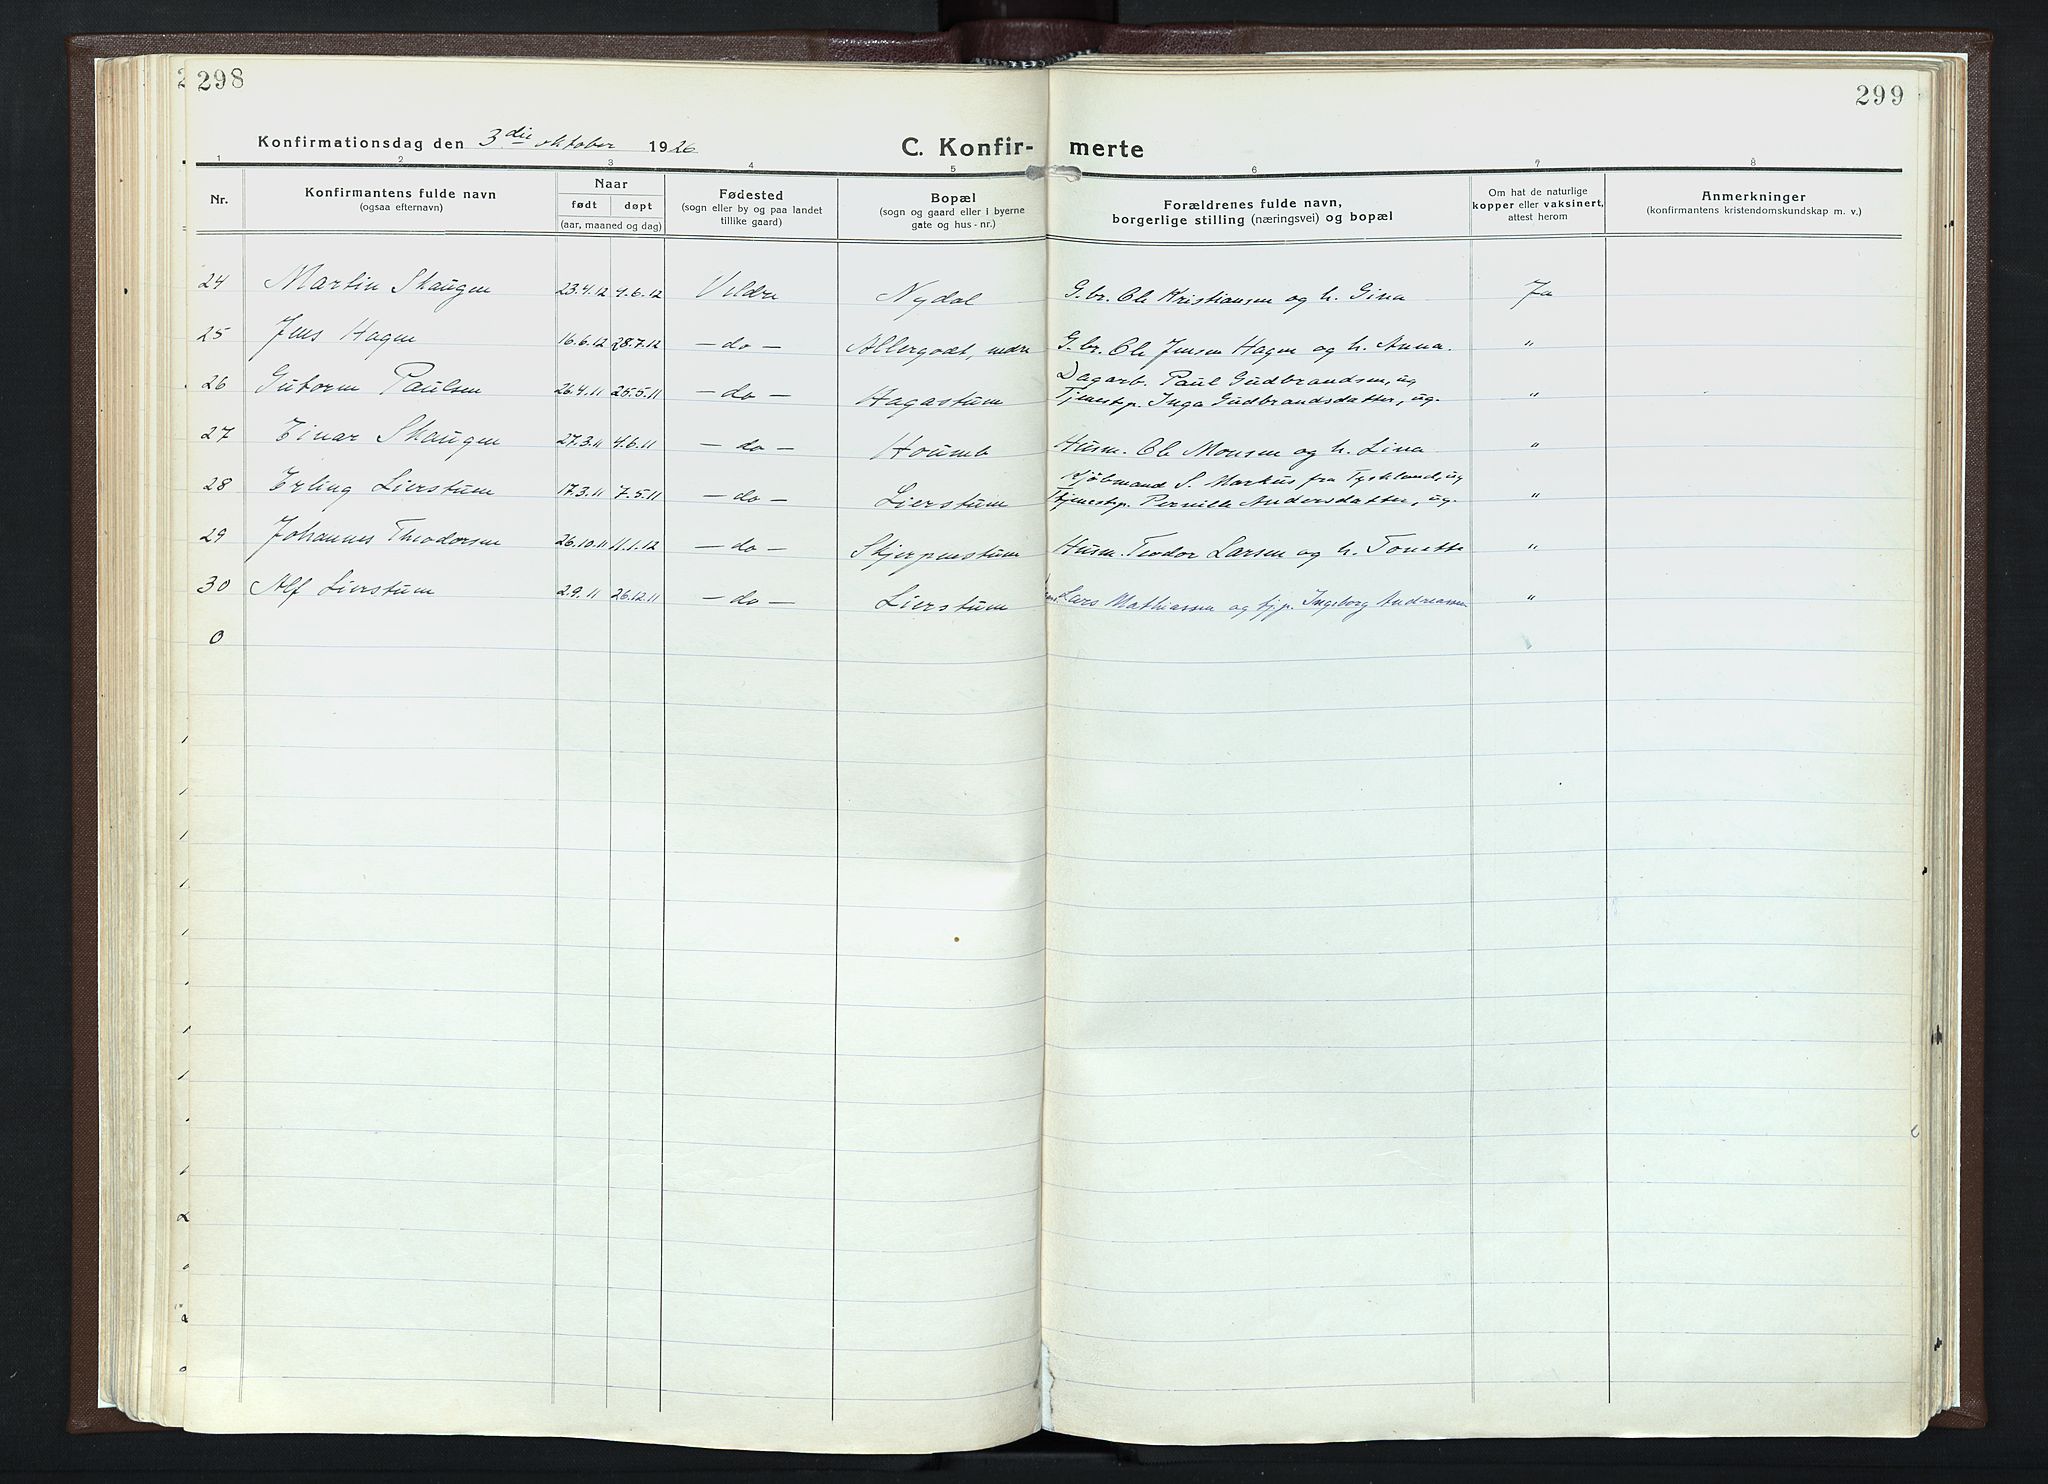 298
299
Konfirmationsdag den 3die oktober 1926
C. Konfir- merte
1 2 3 4 5 6 7 8
Nr. Konfirmantens fulde navn (ogsaa efternavn)
Naar født døpt (aar, maaned og dag)
Fødested (sogn eller by og paa landet tillike gaard)
Bopæl (sogn og gaard eller i byerne gate og hus-nr.)
Forældrenes fulde navn, borgerlige stilling (næringsvei) og bopæl
Om hat de naturlige kopper eller vaksinert, attest herom
Anmerkninger (konfirmantens kristendomskundskap m. v.)
24 Martin Skaugen 23.4.12 4.6.12 Veldre Nydal G.br. Ole Kristiansen og h. Gina Ja
25 Jens Hagen 16.6.12 28.7.12 - do - Allergodt, nedre G.br. Ole Jensen Hagen og h. Anna. "
26 Gutorm Paulsen 26.4.11 25.5.11 - do - Hagastuen Dagarb. Paul Gudbrandsen, ug
Tjenestp. Inga Gudbrandsdatter, ug. "
27 Einar Skaugen 27.3.11 4.6.11 - do - Houmb Husm. Ole Monsen og h. Lina "
28 Erling Lierstuen 17.3.11 7.5.11 - do - Lierstuen Kjøbmand S. Markus fra Tyskland, ug
Tjenestp. Pernille Andersdatter, ug. "
29 Johannes Theodorsen 26.10.11 11.1.12 - do - Skjerpenstuen Husm. Teodor Larsen og h. Tonette "
30 Alf Lierstuen 2.9.11 26.12.11 - do - Lierstuen Lars Mathiassen og tj.p. Ingeborg Andreassen "
0